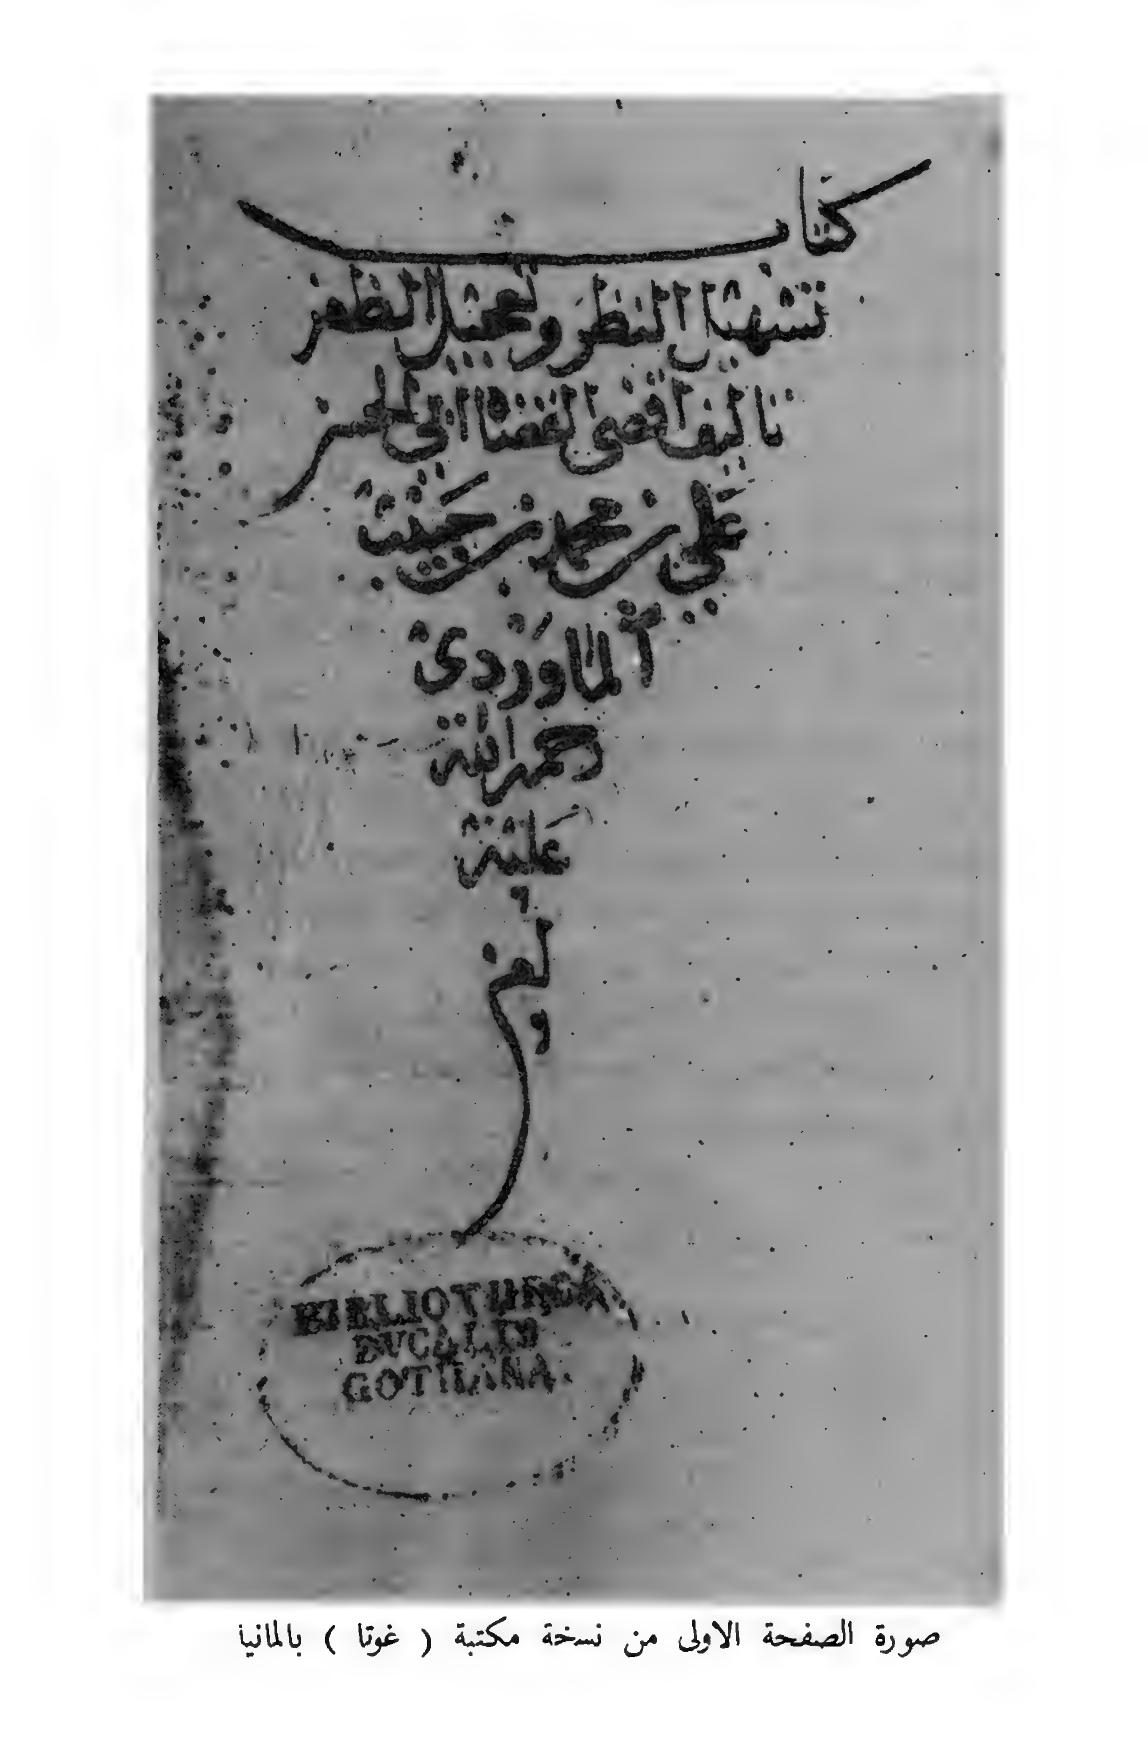 كتاب
تسهيل النظر وتعجيل الظفر
تاليف اقضى القضاة ابى الحسن
علي بن محمد بن حبيب
الماوردي
رحمه الله
عليه
BIBLIOTHECA
DVCALIS
GOTHANA.
صورة الصفحة الاولى من نسخة مكتبة ( غوتا ) بالمانيا